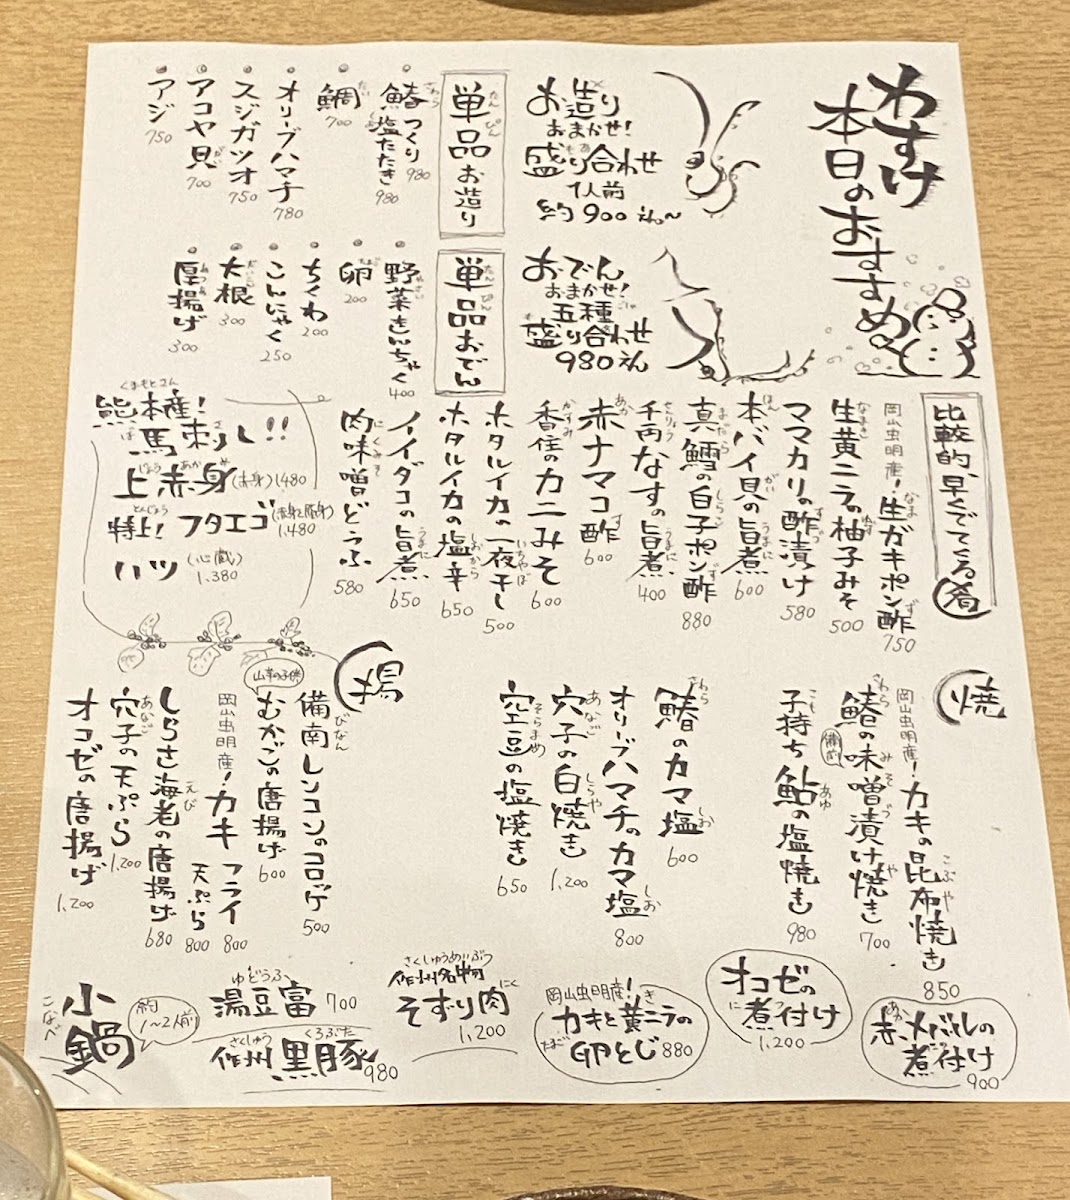 わすけ
本日のおすすめ
お造り
おまかせ!
盛り合わせ
1人前
約900えん~
単品お造り
たんぴん
鰆つくり 980
さわら
塩たたき 980
鯛 700
たい
オリーブハマチ 780
スジガツオ 750
アコヤ貝 700
アジ 750
おでん
おまかせ!
五種
盛り合わせ
980えん
単品おでん
たんぴん
野菜きんちゃく 400
やさい
卵 200
ちくわ 200
こんにゃく 250
大根 300
厚揚げ 300
比較的、早くでてくる肴
岡山虫明産!生ガキポン酢 750
生黄ニラの柚子みそ 500
ママカリの酢漬け 580
本バイ貝の旨煮 600
真鱈の白子ポン酢 880
千両なすの旨煮 400
赤ナマコ酢 600
香住のカニみそ 600
ホタルイカの一夜干し 500
ホタルイカの塩辛 650
イイダコの旨煮 650
肉味噌どうふ 580
くまもとさん
熊本産!
馬刺し!!
上赤身(赤身)1480
特上!フタエゴ
1.480
ハツ(心臓)
1.380
焼
岡山虫明産!カキの昆布焼き 850
鰆の味噌漬け焼き 700
備前
子持ち鮎の塩焼き 980
鰆のカマ塩 600
オリーブハマチのカマ塩 800
穴子の白焼き 1.200
空豆の塩焼き 650
揚
備南レンコンのコロッケ 500
山芋の子供
むかごの唐揚げ 600
岡山虫明産!カキ フライ 800
天ぷら 800
しらさ海老の唐揚げ 680
穴子の天ぷら 1.200
オコゼの唐揚げ 1.200
赤メバルの
煮付け
900
オコゼの
煮付け
1.200
岡山虫明産!
カキと黄ニラの
卵とじ 880
さくしゅうめいぶつ
作州名物
そずり肉
1,200
ゆどうふ
湯豆富 700
さくしゅう くろぶた
作州 黒豚 980
小鍋
こなべ
約
1~2人前